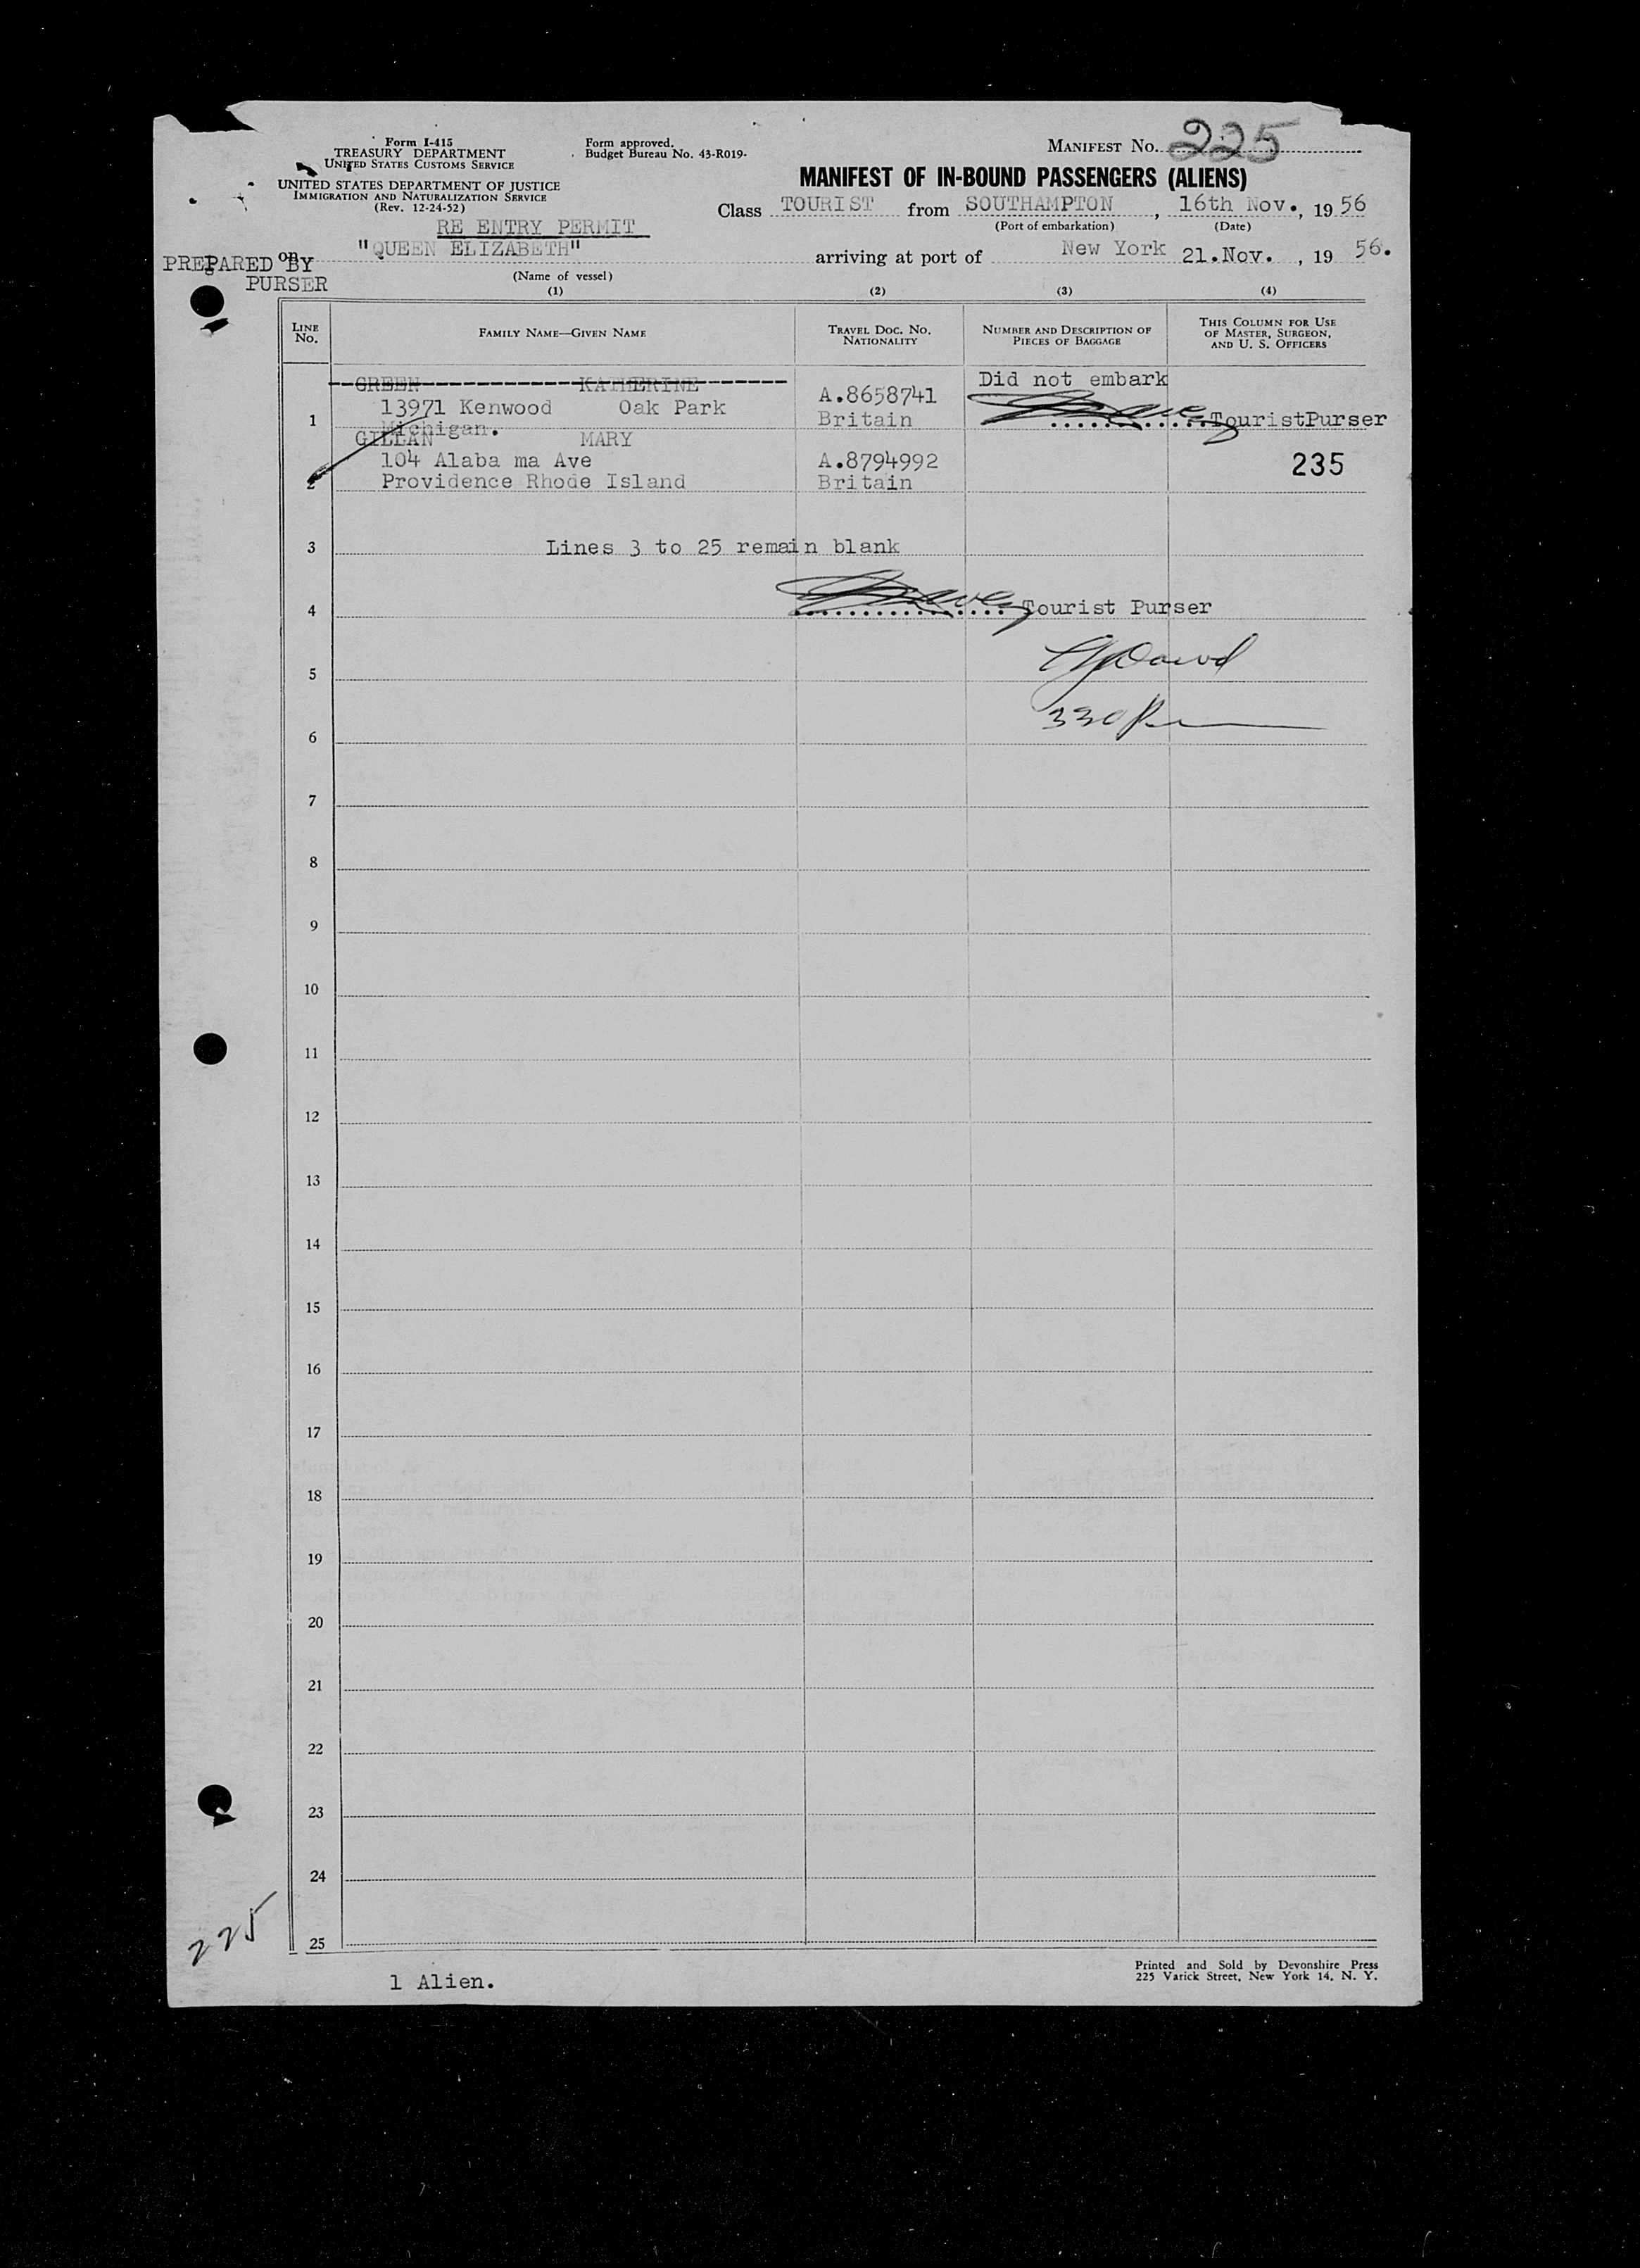 Form I-415
TREASURY DEPARTMENT
UNITED STATES CUSTOMS SERVICE
UNITED STATES DEPARTMENT OF JUSTICE
IMMIGRATION AND NATURALIZATION SERVICE
(Rev. 12-24-52)
Form approved.
Budget Bureau No. 43-R019-
MANIFEST NO. 225
MANIFEST OF IN-BOUND PASSENGERS (ALIENS)
Class TOURIST from SOUTHAMPTON, 16th Nov., 19 56
(Port of embarkation) (Date)
RE ENTRY PERMIT
on "QUEEN ELIZABETH" arriving at port of New York 21.Nov. , 19 56.
(Name of vessel)
PREPARED BY
PURSER
(1) (2) (3) (4)
LINE NO. FAMILY NAME—GIVEN NAME TRAVEL DOC. NO. NATIONALITY NUMBER AND DESCRIPTION OF PIECES OF BAGGAGE THIS COLUMN FOR USE OF MASTER, SURGEON, AND U. S. OFFICERS
GREEN KATHERINE A.8658741 Did not embark
13971 Kenwood Oak Park Britain
1 Michigan. TouristPurser
GILLAN MARY
104 Alaba ma Ave A.8794992 235
2 Providence Rhode Island Britain
3 Lines 3 to 25 remain blank
4 Tourist Purser
5
6 330
7
8
9
10
11
12
13
14
15
16
17
18
19
20
21
22
23
24
25
225
1 Alien.
Printed and Sold by Devonshire Press
225 Varick Street, New York 14, N. Y.